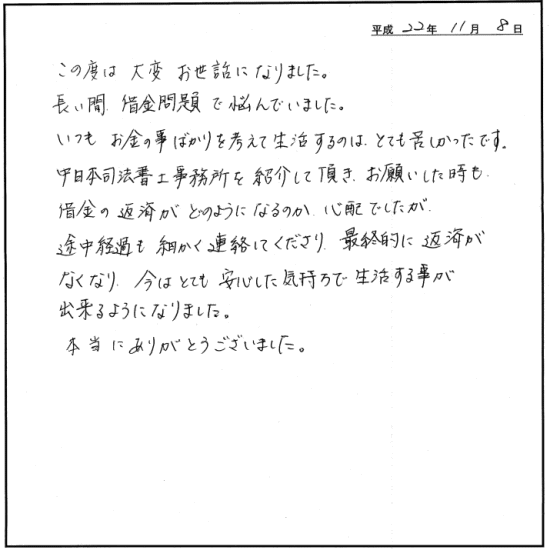 平成 22年 11月 8日
この度は 大変 お世話になりました。
長い間、借金問題で悩んでいました。
いつも お金の事ばかりを考えて生活するのは、とても苦しかったです。
中日本司法書士事務所を紹介して頂き、お願いした時も、
借金の返済がどのようになるのか、心配でしたが、
途中経過も細かく連絡してくださり、最終的に返済が
なくなり、今はとても安心した気持ちで生活する事が
出来るようになりました。
本当にありがとうございました。